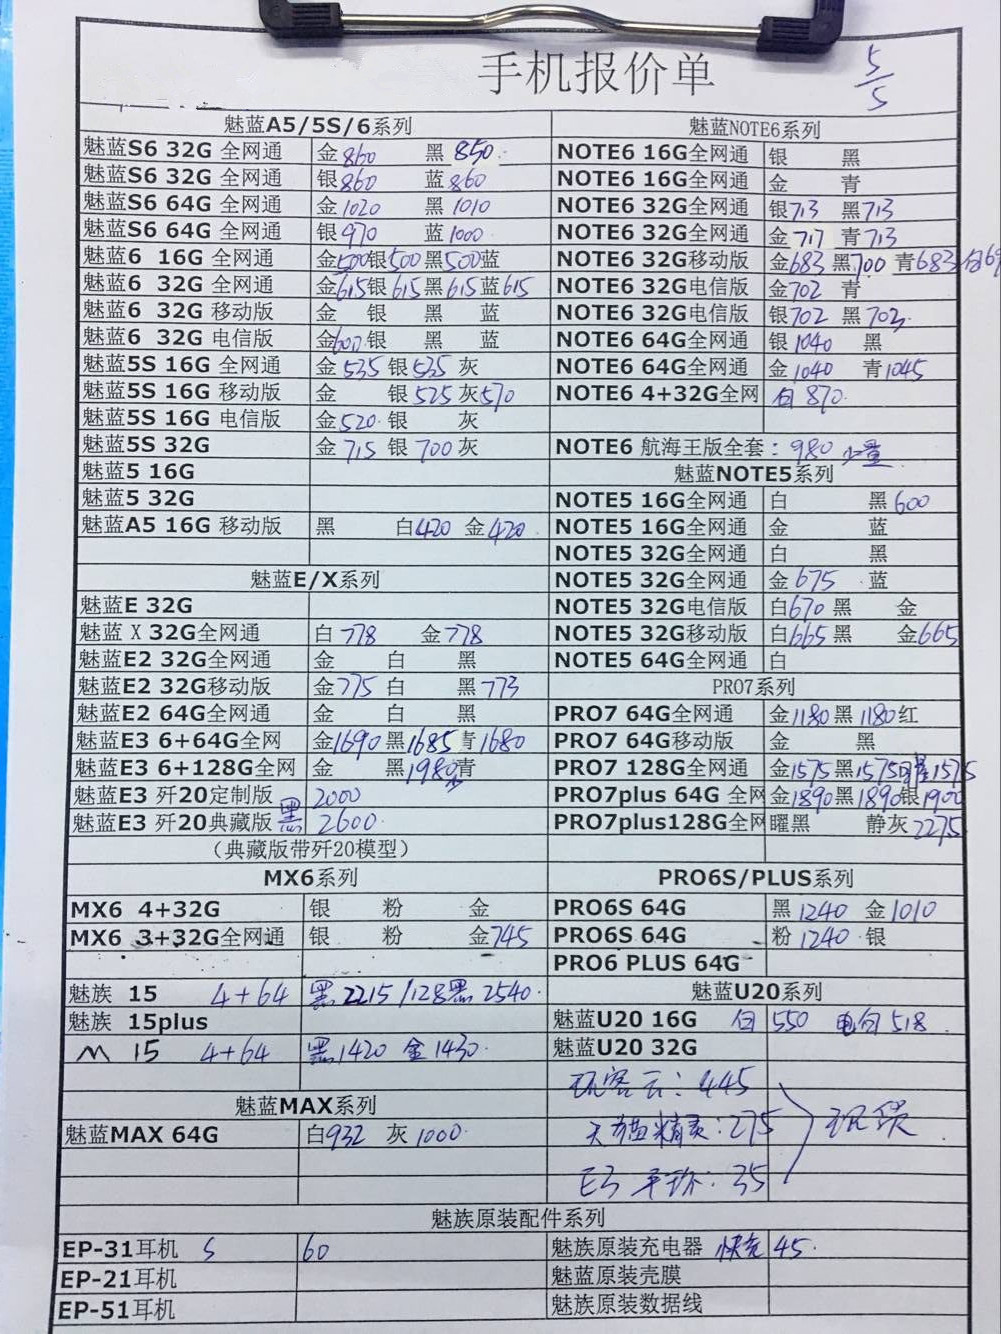 手机报价单
5/5
魅蓝A5/5S/6系列
魅蓝S6 32G 全网通 金860 黑850
魅蓝S6 32G 全网通 银860 蓝860
魅蓝S6 64G 全网通 金1020 黑1010
魅蓝S6 64G 全网通 银970 蓝1000
魅蓝6 16G 全网通 金500银500黑500蓝
魅蓝6 32G 全网通 金615银615黑615蓝615
魅蓝6 32G 移动版 金 银 黑 蓝
魅蓝6 32G 电信版 金600 银 黑 蓝
魅蓝5S 16G 全网通 金535 银535 灰
魅蓝5S 16G 移动版 金 银525 灰570
魅蓝5S 16G 电信版 金520 银 灰
魅蓝5S 32G 金715 银700 灰
魅蓝5 16G
魅蓝5 32G
魅蓝A5 16G 移动版 黑 白420 金420
魅蓝E/X系列
魅蓝E 32G
魅蓝 X 32G全网通 白778 金778
魅蓝E2 32G全网通 金 白 黑
魅蓝E2 32G移动版 金775 白 黑773
魅蓝E2 64G全网通 金 白 黑
魅蓝E3 6+64G全网 金1690 黑1685 青1680
魅蓝E3 6+128G全网 金 黑1980 青
魅蓝E3 歼20定制版 2000
魅蓝E3 歼20典藏版 黑 2600
（典藏版带歼20模型）
MX6系列
MX6 4+32G 银 粉 金
MX6 3+32G全网通 银 粉 金745
魅族 15 4+64 黑2215/128黑2540
魅族 15plus
M 15 4+64 黑1420 金1430
魅蓝MAX系列
魅蓝MAX 64G 白932 灰1000
魅蓝NOTE6系列
NOTE6 16G全网通 银 黑
NOTE6 16G全网通 金 青
NOTE6 32G全网通 银713 黑713
NOTE6 32G全网通 金717 青713
NOTE6 32G移动版 金683 黑700 青683 白
NOTE6 32G电信版 金702 青
NOTE6 32G电信版 银702 黑702
NOTE6 64G全网通 银1040 黑
NOTE6 64G全网通 金1040 青1045
NOTE6 4+32G全网 白870
NOTE6 航海王版全套：980 少量
魅蓝NOTE5系列
NOTE5 16G全网通 白 黑600
NOTE5 16G全网通 金 蓝
NOTE5 32G全网通 白 黑
NOTE5 32G全网通 金675 蓝
NOTE5 32G电信版 白670 黑 金
NOTE5 32G移动版 白665 黑 金665
NOTE5 64G全网通 白
PRO7系列
PRO7 64G全网通 金1180黑1180红
PRO7 64G移动版 金 黑
PRO7 128G全网通 金1575黑1575曜1575
PRO7plus 64G 全网 金1890黑1890银1900
PRO7plus128G全网 曜黑 静灰2275
PRO6S/PLUS系列
PRO6S 64G 黑1240 金1010
PRO6S 64G 粉1240 银
PRO6 PLUS 64G
魅蓝U20系列
魅蓝U20 16G 白550 电白518
魅蓝U20 32G
玩客云：445
天猫精灵：275 现货
E3 手环：35
魅族原装配件系列
EP-31耳机 S 60
EP-21耳机
EP-51耳机
魅族原装充电器 快充45
魅蓝原装壳膜
魅族原装数据线